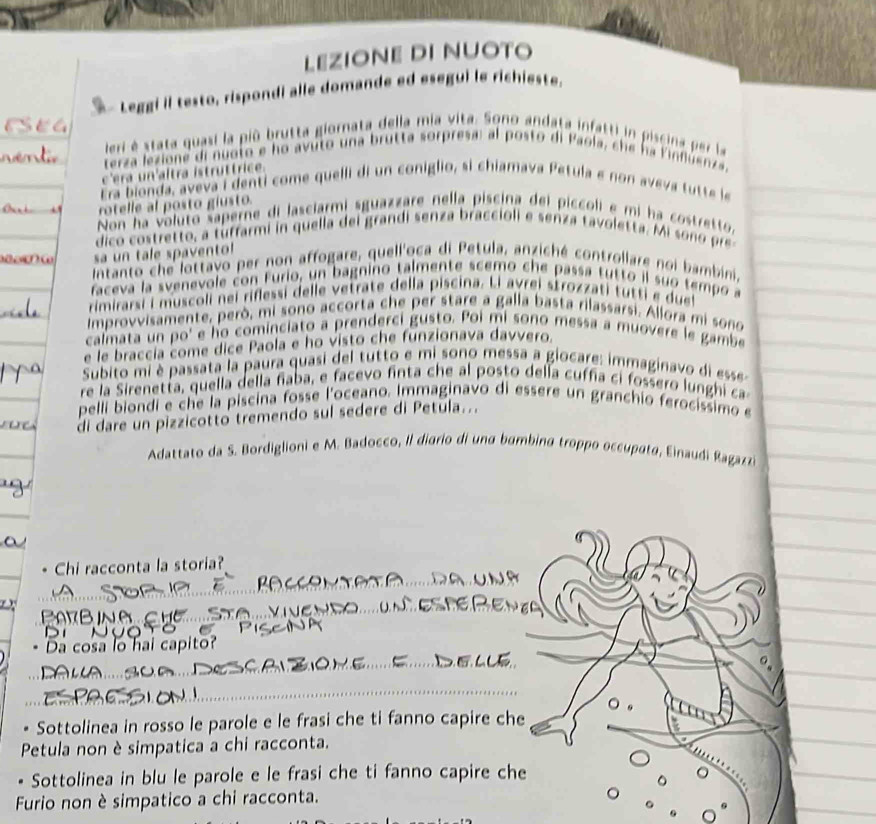 LEZIONE DI NUOTO
Leggi il testo, rispondi alle domande ed esegui le richieste.
Ieri è stata quasi la più brutta giornata della mia vita. Sono andata infatti in piscina per la
terza lezione di nuoto e ho avuto una brutta sorpresa: al posto di Paola, che ha l'influenza,
c'era un'altra istruttrice.
Era bionda, aveva i denti come quelli di un coniglio, si chiamava Petula e non aveva tutte le
rotelle al posto giusto.
Non ha voluto saperne di lasciarmi sguazzare nella piscina dei piccoli e mi ha costretto,
dico costretto, a tuffarmi in quella dei grandi senza braccioli e senza tavoletta. Mi sono pre-
sa un tale spavento!
Intanto che lottavo per non affogare, quell'oca di Petula, anziché controllare noi bambini,
faceva la svenevole con Furio, un bagnino talmente scemo che passa tutto il suo tempo a
rimirarsi i muscoli nei riflessi delle vetrate della piscina. Li avrei strozzati tutti e due!
Improvvisamente, però, mi sono accorta che per stare a galla basta rilassarsi. Allora mi sono
calmata un po' e ho cominciato a prenderci gusto. Poi mi sono messa a muovere le gambe
e le braccia come dice Paola e ho visto che funzionava davvero.
Subito mi è passata la paura quasi del tutto e mi sono messa a giocare: immaginavo di esse-
re la Sirenetta, quella della fiaba, e facevo finta che al posto della cuffia ci fossero lunghi ca-
pelli biondi e che la piscina fosse l'oceano. Immaginavo di essere un granchio ferocissimo e
di dare un pizzicotto tremendo sul sedere di Petula...
Adattato da S. Bordiglioni e M. Badocco, Il diario di una bambina troppo occupata, Einaudi Ragazzi
• Chi racconta la storia?
LA STORIA È RACCONTATA DA UNA
BAMBINA CHE STA VIVENDO UN ESPERENZA
DI NUOTO E PISCINA
• Da cosa lo hai capito?
DALLA SUA DESCRIZIONE E DELLE
ESPRESSIONI
• Sottolinea in rosso le parole e le frasi che ti fanno capire che
Petula non è simpatica a chi racconta.
• Sottolinea in blu le parole e le frasi che ti fanno capire che
Furio non è simpatico a chi racconta.